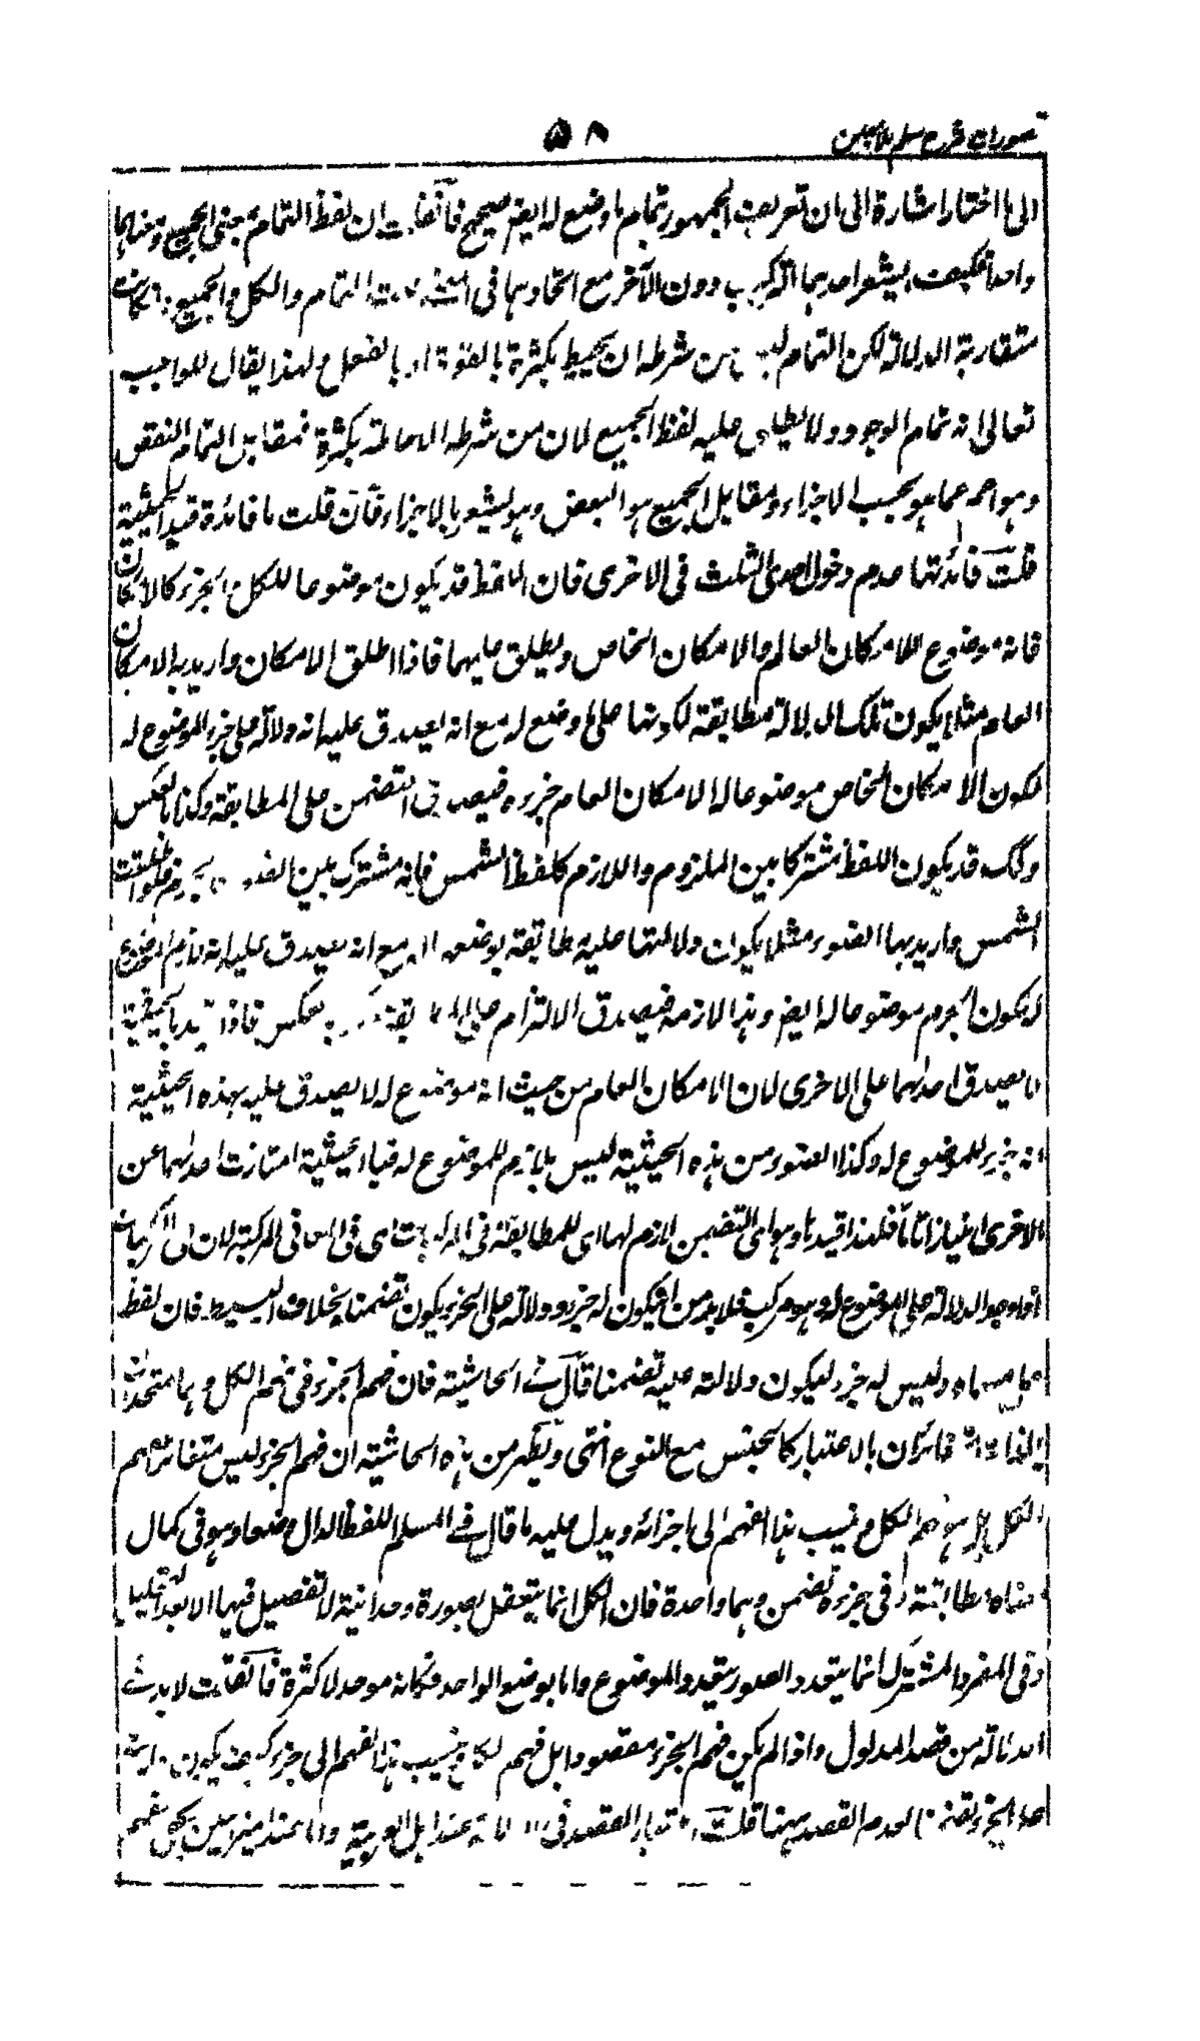 تصورات شرح سلم ملا مبین
۵۸
الی ما اختار اشارة الی ان تعریف الجمهور بتمام ما وضع له ایضا صحیح فان قلت ان لفظ التمام بمعنی الجمیع ومعناهما
واحد فکیف یشعر احدهما الترکیب دون الآخر مع اتحادهما فی قلت التمام والکل والجمیع وان کانت
متقاربة الدلالة لکن التمام لیس من شرطه ان یحیط بکثرة بالقوة او بالفعل ولهذا یقال للواجب
تعالی انه تمام الوجود ولا یطلق علیه لفظ الجمیع لان من شرطه الاحاطة بکثرة فمقابل التمام النقص
وهو اعم مما هو بحسب الاجزاء ومقابل الجمیع هو البعض وهو یشعر بالاجزاء فان قلت ما فائدة قید الحیثیة
قلت فائدتها عدم دخول احدی الثلث فی الاخری فان اللفظ قد یکون موضوعا للکل والجزء کالامکان
فانه موضوع للامکان العام والامکان الخاص ویطلق علیهما فاذا اطلق الامکان وارید به الامکان
العام مثلا یکون تلک الدلالة مطابقة لکونها علی ما وضع له مع انه یصدق علیه انه دلالة علی جزء الموضوع له
لکون الامکان الخاص موضوعا له الامکان العام جزءه فیصدق التضمن علی المطابقة وکذا بالعکس
وکذلک قد یکون اللفظ مشترکا بین الملزوم واللازم کلفظ الشمس فانه مشترک بین الضوء والجرم فلو اطلقت
الشمس وارید بها الضوء مثلا یکون دلالتها علیه مطابقة بوضعه له مع انه یصدق علیه انه لازم الموضوع
له لکون الجرم موضوعا له ایضا وهذا لازمه فیصدق الالتزام علی المطابقة وبالعکس فاذا قید بالحیثیة
لا یصدق احدهما علی الاخری لان الامکان العام من حیث انه موضوع له لا یصدق علیه بهذه الحیثیة
انه جزء للموضوع له وکذا الضوء من هذه الحیثیة لیس بلازم للموضوع له فباالحیثیة امتازت احدهما عن
الاخری امتیازا تاما فلهذا قید بها وهو ای التضمن لازم لها ای للمطابقة فی المرکبات ای فی المعانی المرکبة لان فی المرکبات
اذا وجد الدلالة علی الموضوع له وهو مرکب فلا بد من ان یکون له جزء ودلالته علی الجزء یکون تضمنا بخلاف البسیط فان لفظ
یدل علی مسماه ولیس له جزء لیکون دلالته علیه تضمنا قال فی الحاشیة فان فهم الجزء فی فهم الکل وهما متحدان
بالذات متغائران بالاعتبار کالجنس مع النوع انتهی ویظهر من هذه الحاشیة ان فهم الجزء لیس متغائرا لفهم
الکل بل هو فهم الکل ونسب هذا الفهم الی اجزائه ویدل علیه ما قال فی المسلم اللفظ الدال وضعا وهو فی کمال
معناه مطابقة وفی جزءه تضمن وهما واحدة فان الکل انما یتعقل بصورة وحدانیة لا تفصیل فیها الا بعد التحلیل
وفی المفرد المشترک انما یتعدد الصور بتعدد الموضوع واما بوضع الواحد فکانه موحد لا کثرة فان قلت لا بد فی
الدلالة من قصد المدلول واذا لم یکن فهم الجزء مقصودا بل فهم الکل ونسب هذا الفهم الی جزءه کیف یکون دلالته
علی الجزء تضمنا لعدم القصد ههنا قلت اعتبار القصد فی الدلالة عند اهل العربیة واما عند المیزانیین یکفی فهم